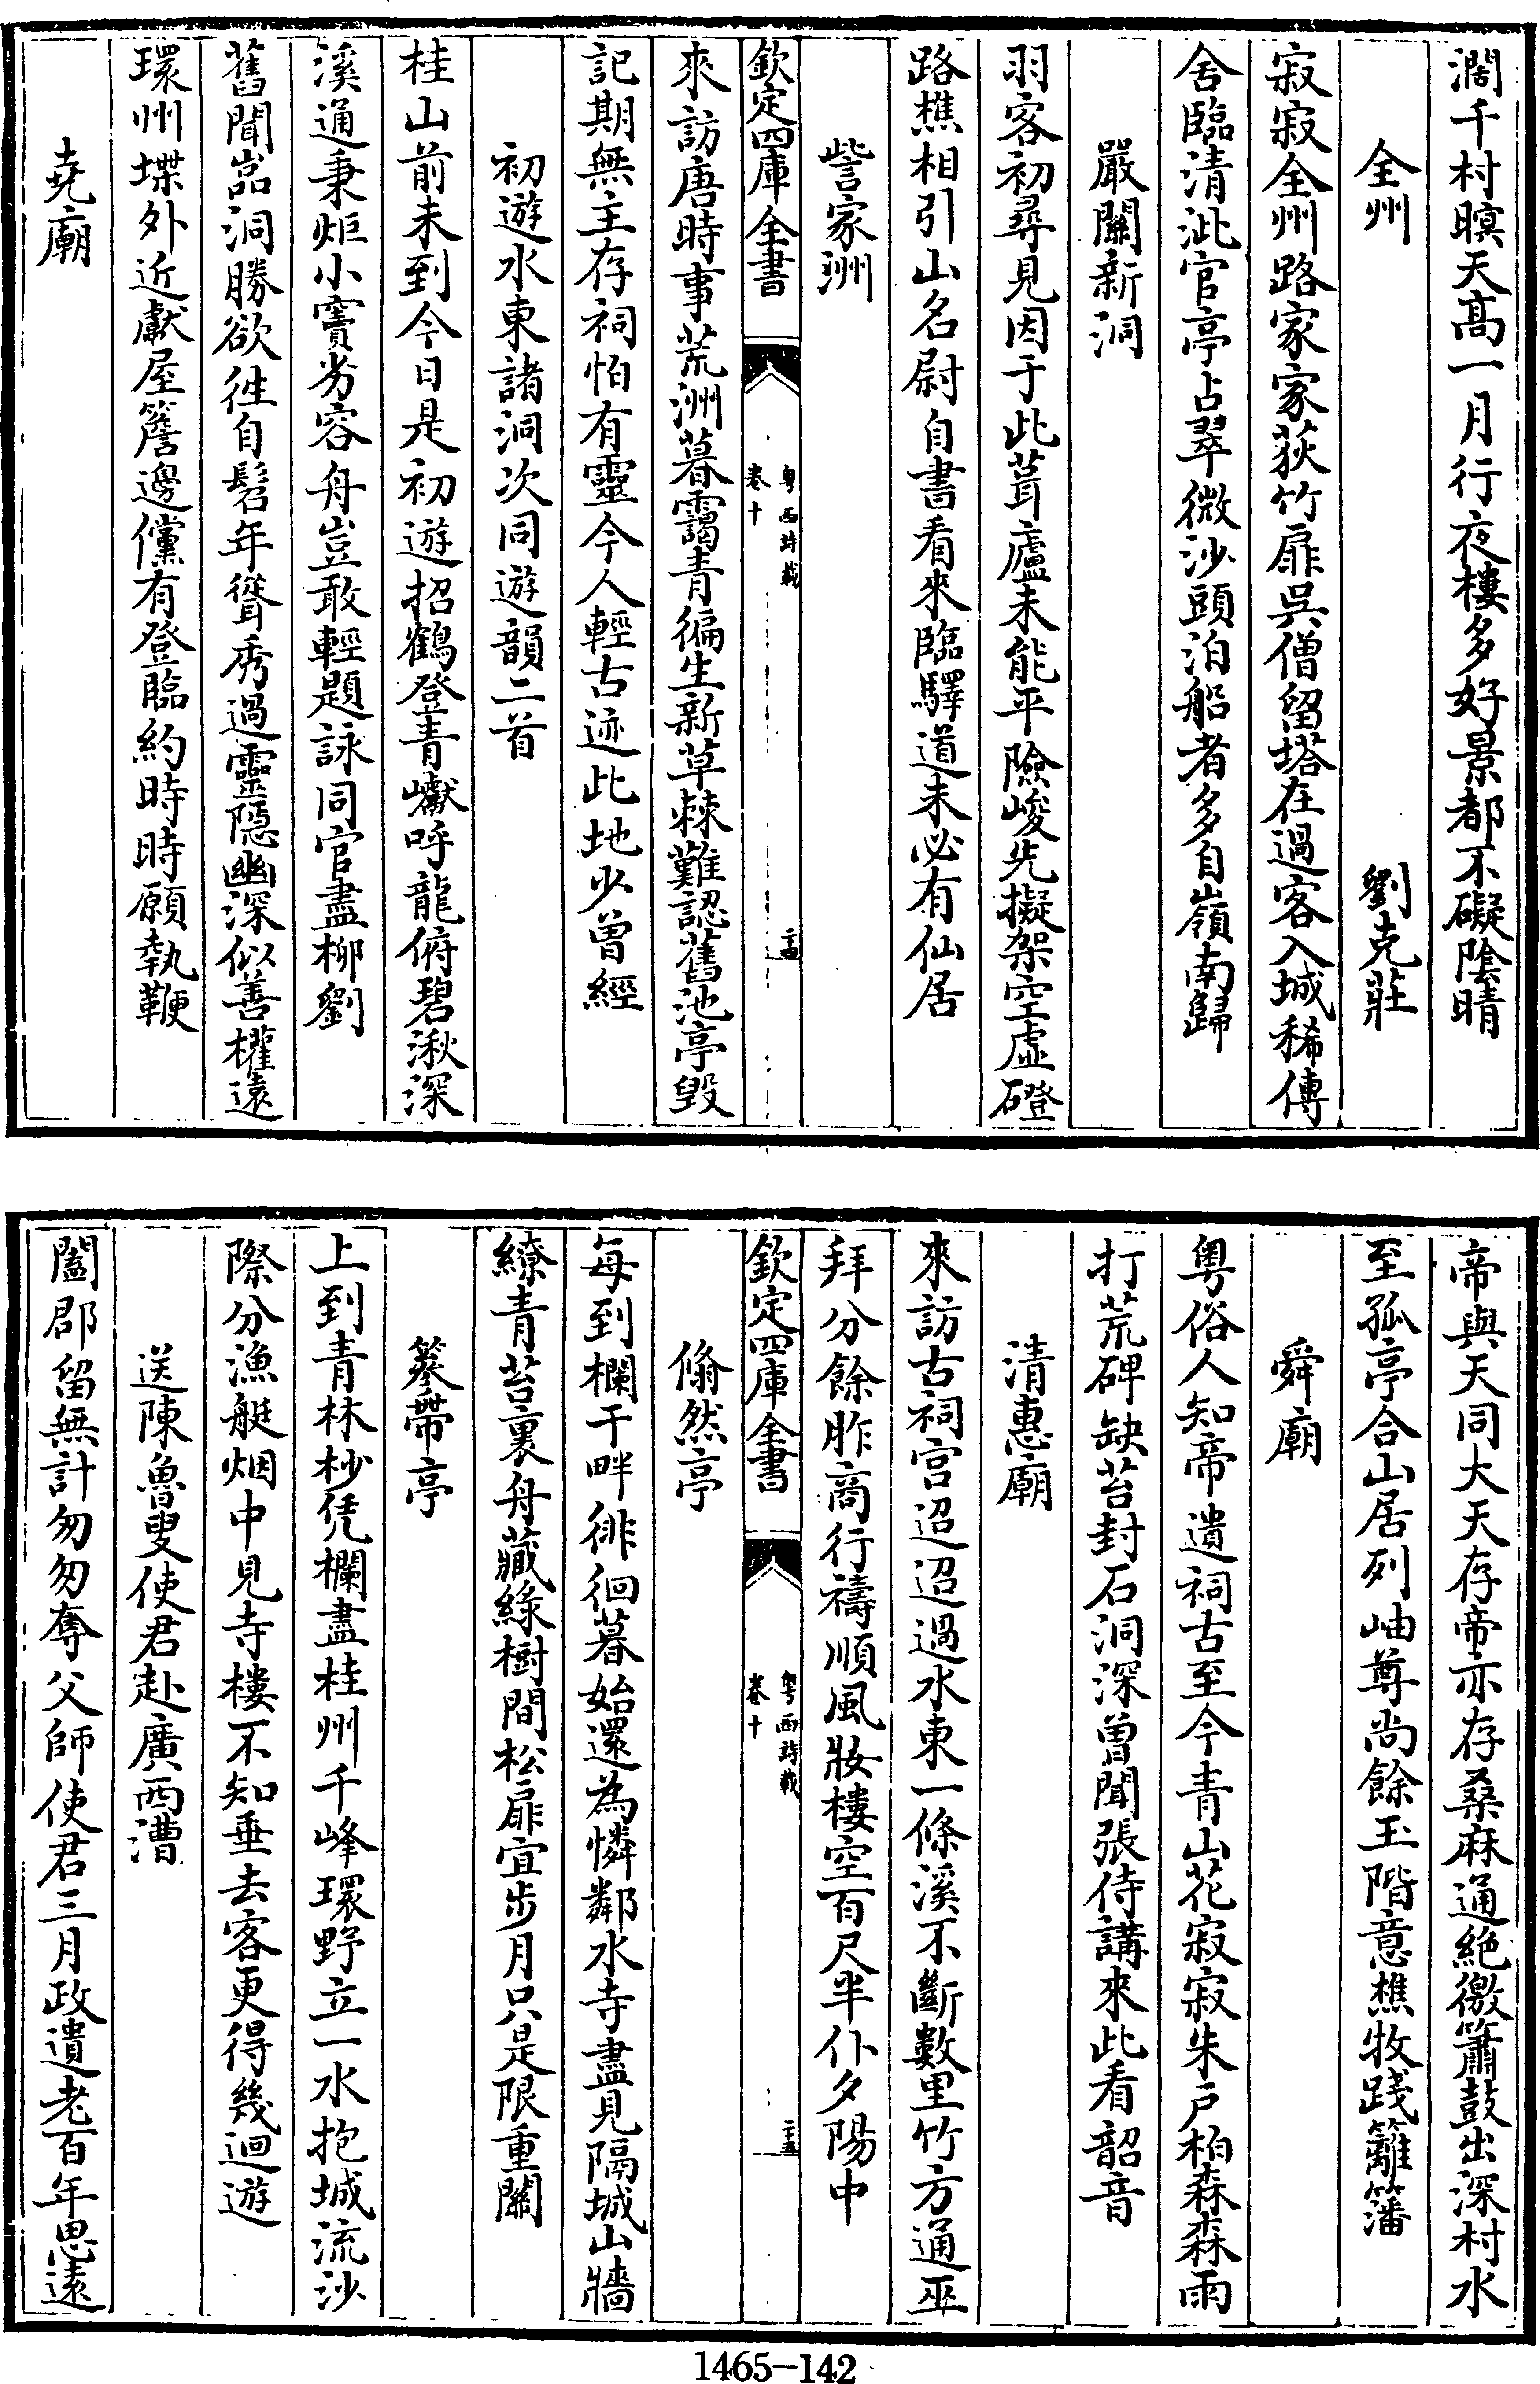 濶千村暝天髙一月行夜樓多好景都不礙隂晴
全州　劉克莊
寂寂全州路家家荻竹扉呉僧留塔在過客入城稀傳
舍臨清泚官亭占翠微沙頭泊船者多自嶺南歸
嚴闗新洞
羽客初尋見因于此葺廬未能平險峻先擬架空虚磴
路樵相引山名尉自書看來臨驛道未必有仙居
訾家洲
欽定四庫全書
粤西詩載
卷十
二十四
來訪唐時事荒洲暮靄青徧生新草棘難認舊池亭毁
記期無主存祠怕有靈今人輕古迹此地少曽經
初遊水東諸洞次同遊韻二首
桂山前未到今日是初遊招鶴登青巘呼龍俯碧湫深
溪通秉炬小竇劣容舟豈敢輕題詠同官盡栁劉
舊聞嵓洞勝欲徃自髫年聳秀過靈隠幽深似善權遠
環州堞外近獻屋簷邊儻有登臨約時時願執鞭
堯廟
帝與天同大天存帝亦存桑麻通絶徼簫鼓出深村水
至孤亭合山居列岫尊尚餘玉階意樵牧踐籬籓
舜廟
粤俗人知帝遺祠古至今青山花寂寂朱戸栢森森雨
打荒碑缺苔封石洞深曽聞張侍講來此看韶音
清惠廟
來訪古祠宫迢迢過水東一條溪不斷數里竹方通巫
拜分餘胙商行禱順風妝樓空百尺半仆夕陽中
欽定四庫全書
粤西詩載
卷十
二十五
翛然亭
每到欄干畔徘徊暮始還為憐鄰水寺盡見隔城山牆
繚青苔裏舟藏綠樹間松扉宜步月只是限重闗
簪帶亭
上到青林杪凭欄盡桂州千峰環野立一水抱城流沙
際分漁艇烟中見寺樓不知垂去客更得幾迴遊
送陳魯叟使君赴廣西漕
闔郡留無計匆匆奪父師使君三月政遺老百年思逺
1465-142